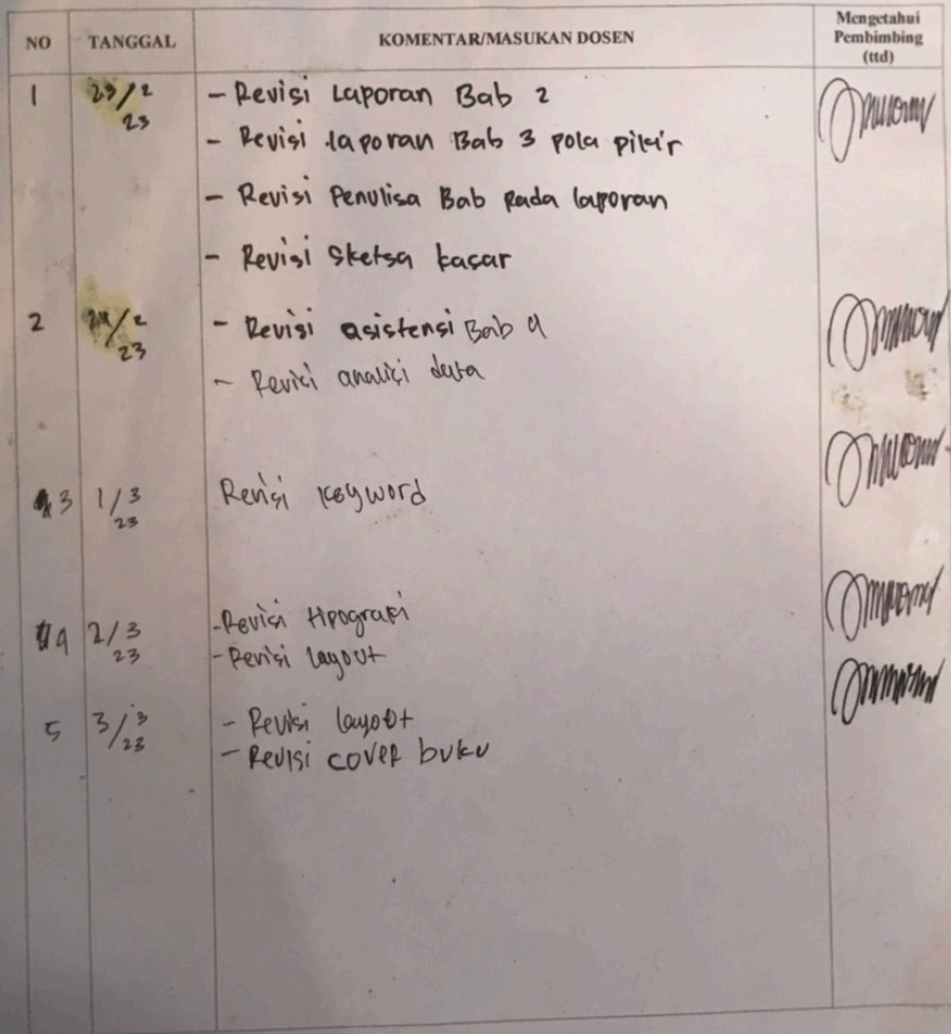 NO TANGGAL KOMENTAR/MASUKAN DOSEN Mengetahui
Pembimbing
(ttd)
1 23/2 - Revisi Laporan Bab 2
23
- Revisi laporan Bab 3 pola pikir
- Revisi Penulisa Bab Pada laporan
- Revisi Sketsa kasar
2 24/2 - Revisi asistensi Bab 4
23
- Revisi analisi data
3 1/3 Revisi keyword
23
4 2/3 - Revisi tipografi
23 - Revisi layout
5 3/3 - Revisi layout
23 - Revisi cover buku